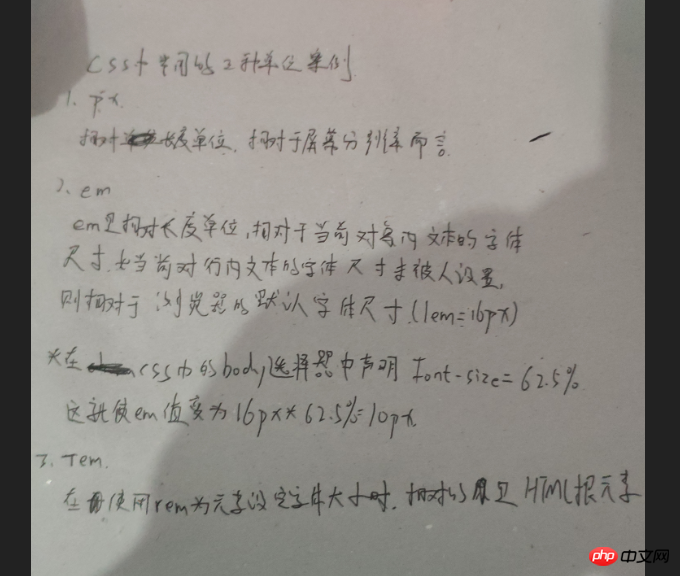 css中常用的2种单位案例
1. px.
相对长度单位.相对于屏幕分辨率而言.
2. em
em是相对长度单位,相对于当前对象内文本的字体
尺寸.如当前对行内文本的字体尺寸未被人设置,
则相对于浏览器的默认字体尺寸.(1em=16px)
*在css中的body选择器中声明 Font-size=62.5%.
这就使em值变为16px*62.5%=10px.
3. rem.
在使用rem为元素设定字体大小时.相对的是HTML根元素
php 中文网